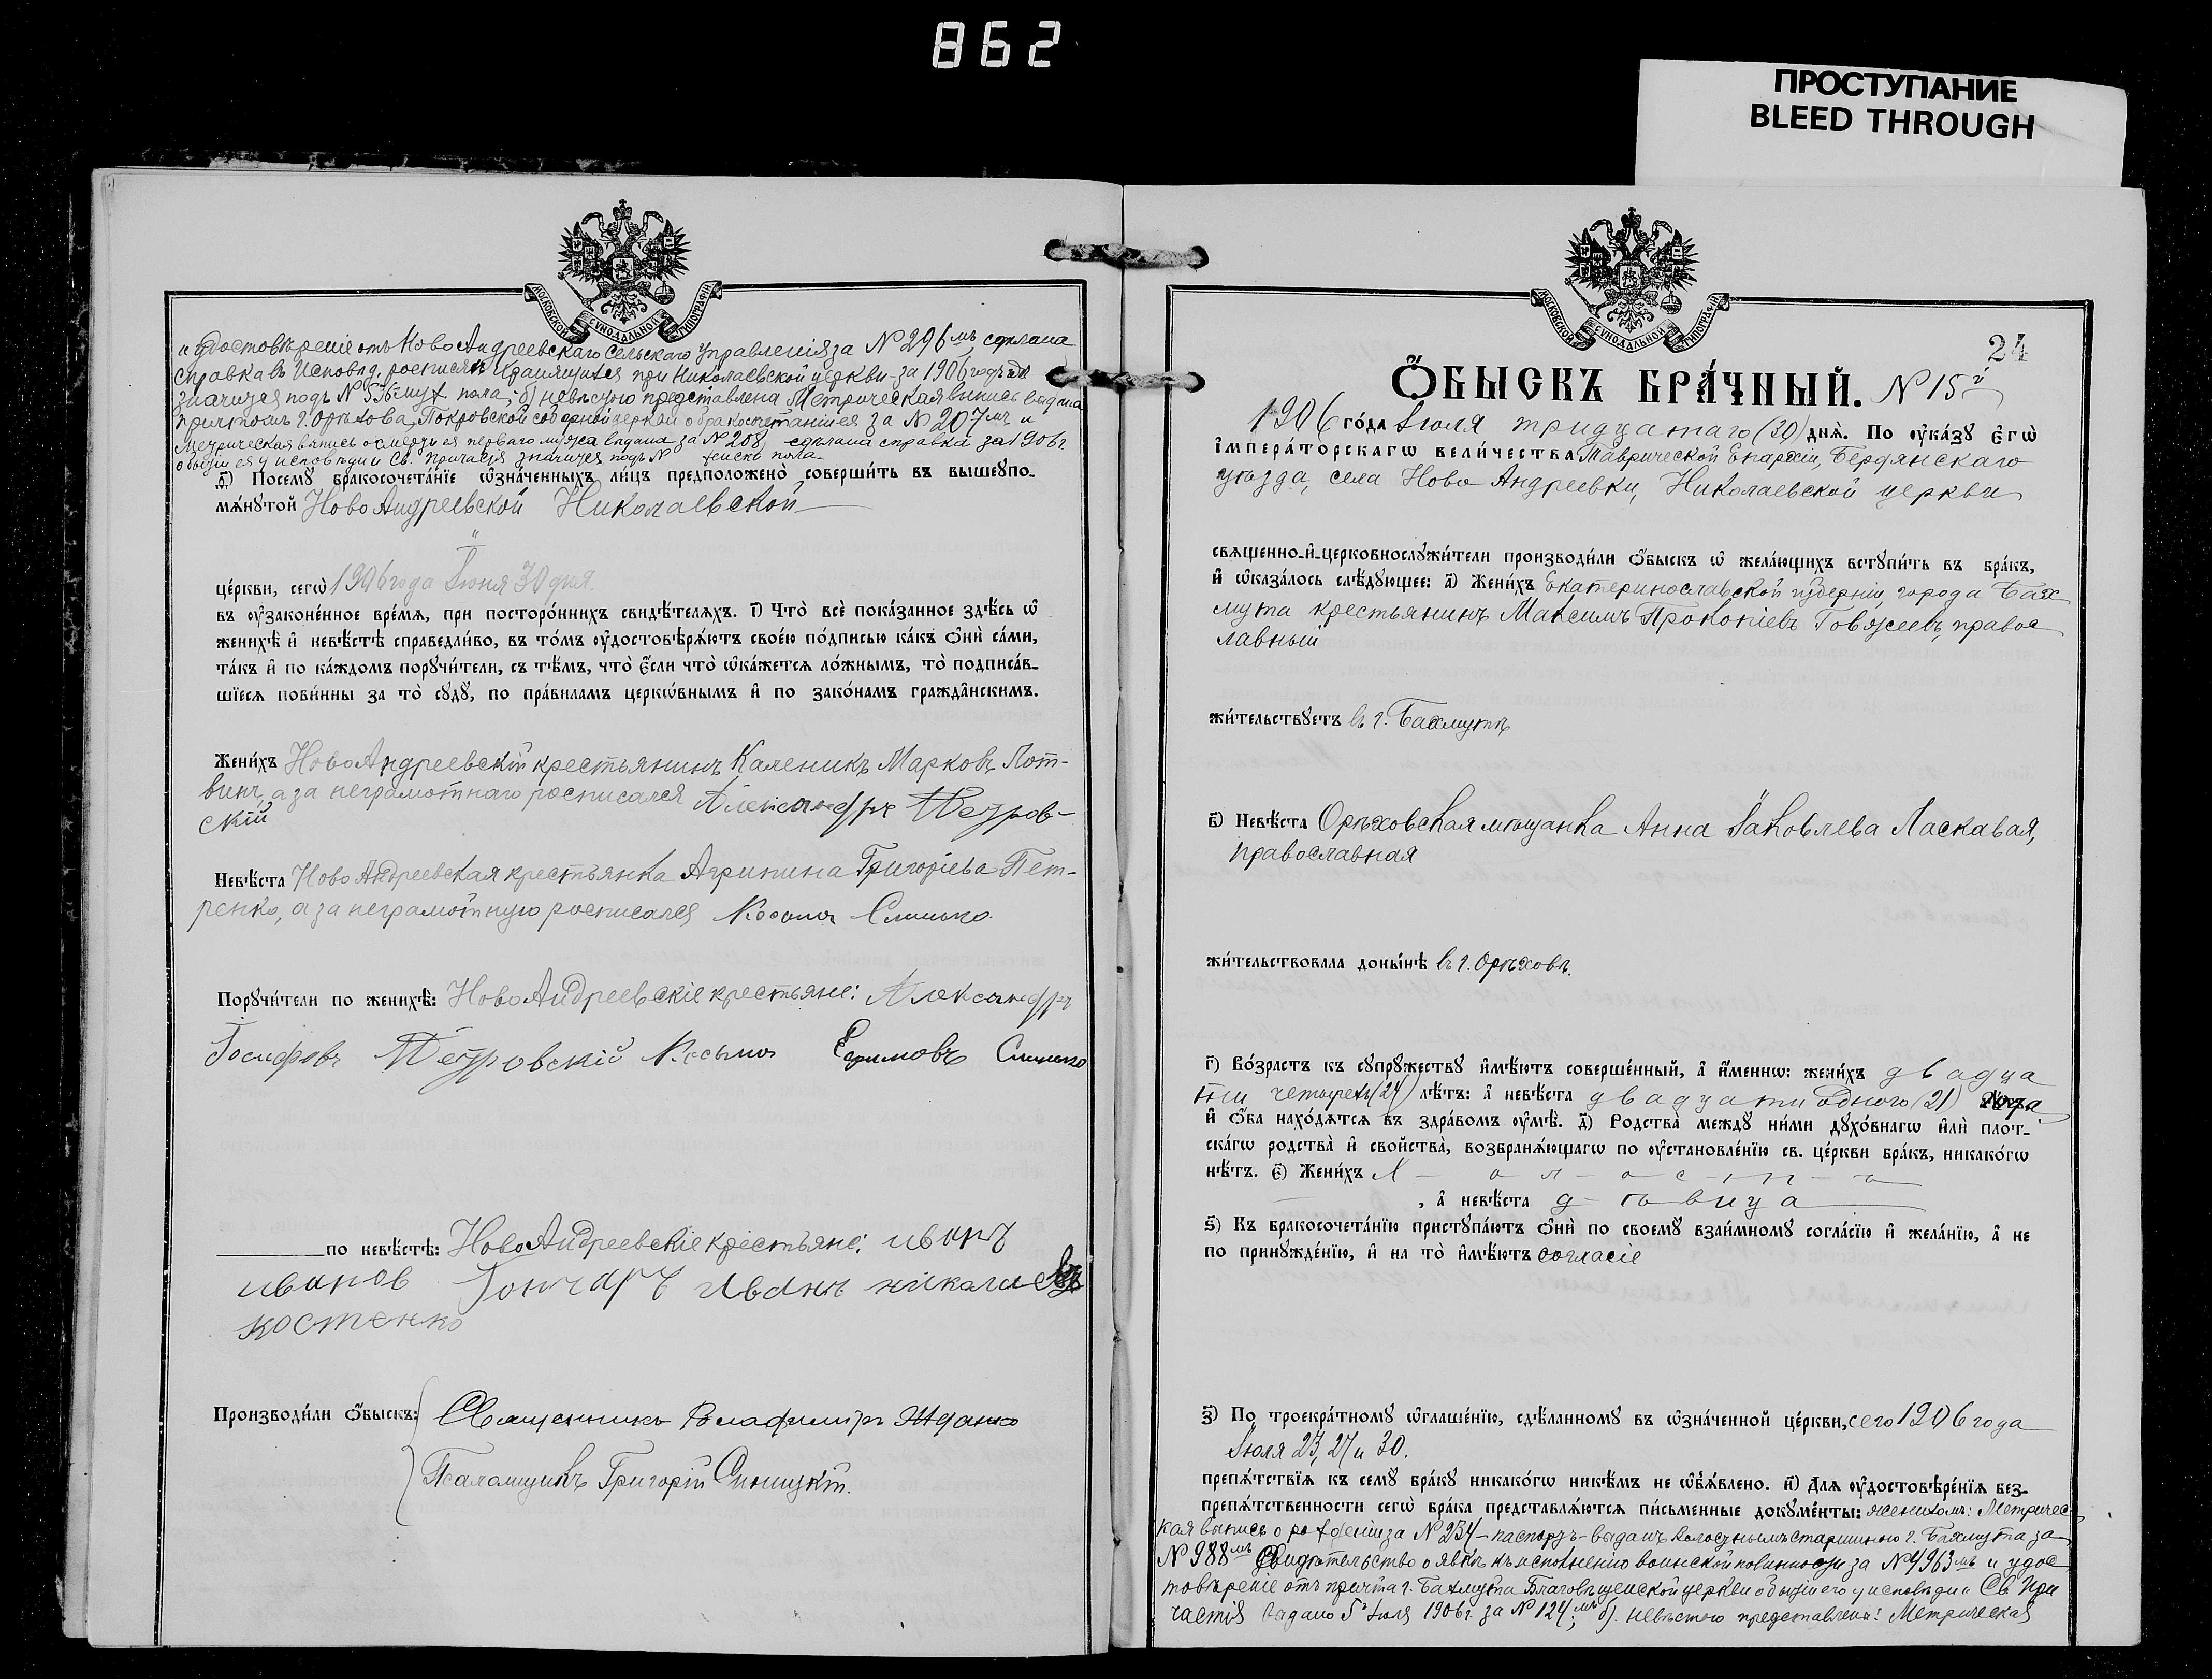 862
ПРОСТУПАНИЕ
BLEED THROUGH
МОСКОВСКОЙ СѴНОДАЛЬНОЙ ТИПОГРАФІИ
и удостовѣреніе отъ Ново Андреевскаго Сельскаго Управленія за № 296мъ, сдѣлана
справка въ Исповѣд. росписяхъ хранящихся при Николаевской церкви за 1906 годъ
значится подъ № муж. пола; б) невѣстою представлена Метрическая выпись выдана
причтомъ г. Орѣхова, Покровской соборной церкви о бракосочетавшихся за № 207мъ и
Метрическая выпись о смерти ея перваго мужа выдана за № 208, сдѣлана справка за 1906 г.
о бытіи ея у исповѣди и Св. Причастія значится подъ № женск. пола.
д҃) Посемꙋ̀ бракосочета́нїе ѡ҆зна́ченныхъ ли́цъ предположено̀ соверши́ть въ вышеꙋпо-
мѧ́нꙋтой Ново Андреевской Николаевской
це́ркви, сегѡ̀ 1906 года Іюня 30 дня.
въ ᲂу҆законе́нное вре́мѧ, при посторо́ннихъ свидѣ́телѧхъ. і҃) Что̀ всѐ пока́занное здѣ́сь ѡ҆
женихѣ̀ и҆ невѣ́стѣ справедли́во, въ то́мъ ᲂу҆достовѣрѧ́ютъ свое́ю по́дписью ка́къ ѻ҆нѝ са́ми,
та́къ и҆ по ка́ждомъ порꙋчи́тели, съ тѣ́мъ, что̀ є҆́сли что̀ ѡ҆ка́жетсѧ ло́жнымъ, то̀ подписа́в-
шїесѧ пови́нны за то̀ сꙋдꙋ̀, по пра́виламъ церкѡ́внымъ и҆ по зако́намъ гражда̑нскимъ.
Жени́хъ Ново Андреевскій крестьянинъ Каленикъ Марковъ Лот-
винъ, а за неграмотнаго росписался Александръ Петров-
скій
Невѣ́ста Ново Андреевская крестьянка Агрипина Григоріева Пет-
ренко, а за неграмотную росписался Косьма Слинько
Порꙋчи́тели по женихѣ̀: Ново Андреевскіе крестьяне: Александръ
Іосифовъ Петровскій Косьма Ефимовъ Слинько
по невѣ́стѣ: Ново Андреевскіе крестьяне: иванъ
иванов Гончаръ иванъ николаевъ
костенко
Произво́дили ѻ҆́быскъ: Священникъ Владиміръ Жданко
Псаломщикъ Григорій Синицкій.
МОСКОВСКОЙ СѴНОДАЛЬНОЙ ТИПОГРАФІИ
24
Ѻ҆́БЫСКЪ БРА́ЧНЫЙ. № 15й
1906 го́да Іюля тридцатаго (30) днѧ̀. По ᲂу҆ка́зꙋ є҆гѡ̀
і҆мпера́торскагѡ вели́чества Таврической Епархіи, Бердянскаго
уѣзда, села Ново Андреевки, Николаевской церкви
свѧщенно-и҆-церковнослꙋжи́тели производи́ли ѻ҆́быскъ ѡ҆ жела́ющихъ встꙋпи́ть въ бра́къ,
и҆ ѡ҆каза́лось слѣ́дꙋющее: а҃) Жени́хъ Екатеринославской губерніи, города Бах
мута крестьянинъ Максимъ Прокопіевъ Говяжеевъ, правос
лавный
жи́тельствꙋетъ въ г. Бахмутѣ
в҃) Невѣ́ста Орѣховская мѣщанка Анна Яковлева Ласкавая,
православная
жи́тельствовала доны́нѣ въ г. Орѣховѣ.
г҃) Во́зрастъ къ сꙋпрꙋ́жествꙋ и҆мѣ́ютъ соверше́нный, а҆ и҆́меннѡ: жени́хъ двадца
ти четырехъ (24) лѣ́тъ: а҆ невѣ́ста двадцати одного (21) года
и҆ ѻ҆́ба нахо́дѧтсѧ въ здра́вомъ ᲂу҆мѣ̀. д҃) Родства̀ междꙋ̀ ни́ми дꙋхо́внагѡ и҆лѝ плот-
ска́гѡ родства̀ и҆ свойства̀, возбранѧ́ющагѡ по ᲂу҆становле́нїю св. це́ркви бра́къ, никако́гѡ
нѣ́тъ. є҃) Жени́хъ Х о л о с т ъ
, а҆ невѣ́ста д ѣ в и ц а
ѕ҃) Къ бракосочета́нїю пристꙋпа́ютъ ѻ҆нѝ по своемꙋ̀ взаи́мномꙋ согла́сїю и҆ жела́нїю, а҆ не
по принꙋжде́нїю, и҆ на то̀ и҆мѣ́ютъ согласіе
з҃) По троекра́тномꙋ ѡ҆глаше́нїю, сдѣ́ланномꙋ въ ѡ҆зна́ченной це́ркви, сего 1906 года
Іюля 23, 27 и 30.
препѧ́тствїѧ къ семꙋ̀ бра́кꙋ никако́гѡ никѣ́мъ не ѡ҆бъѧ́влено. и҃) Длѧ ᲂу҆достовѣре́нїѧ без-
препѧ́тственности сегѡ̀ бра́ка представлѧ́ютсѧ пи́сьменные докꙋме́нты: женихомъ: Метричес
кая выпись о рожденіи за № 234 – паспортъ – выданъ Волостнымъ старшиною г. Бахмута за
№ 988мъ Свидѣтельство о явкѣ къ исполненію воинской повинности за № 4963мъ и удос
товѣреніе отъ причта г. Бахмута Благовѣщенской церкви о бытіи его у исповѣди и Св. При
частія выдано 5го Іюля 1906 г. за № 124мъ; б). Невѣстою представлены: Метрическая